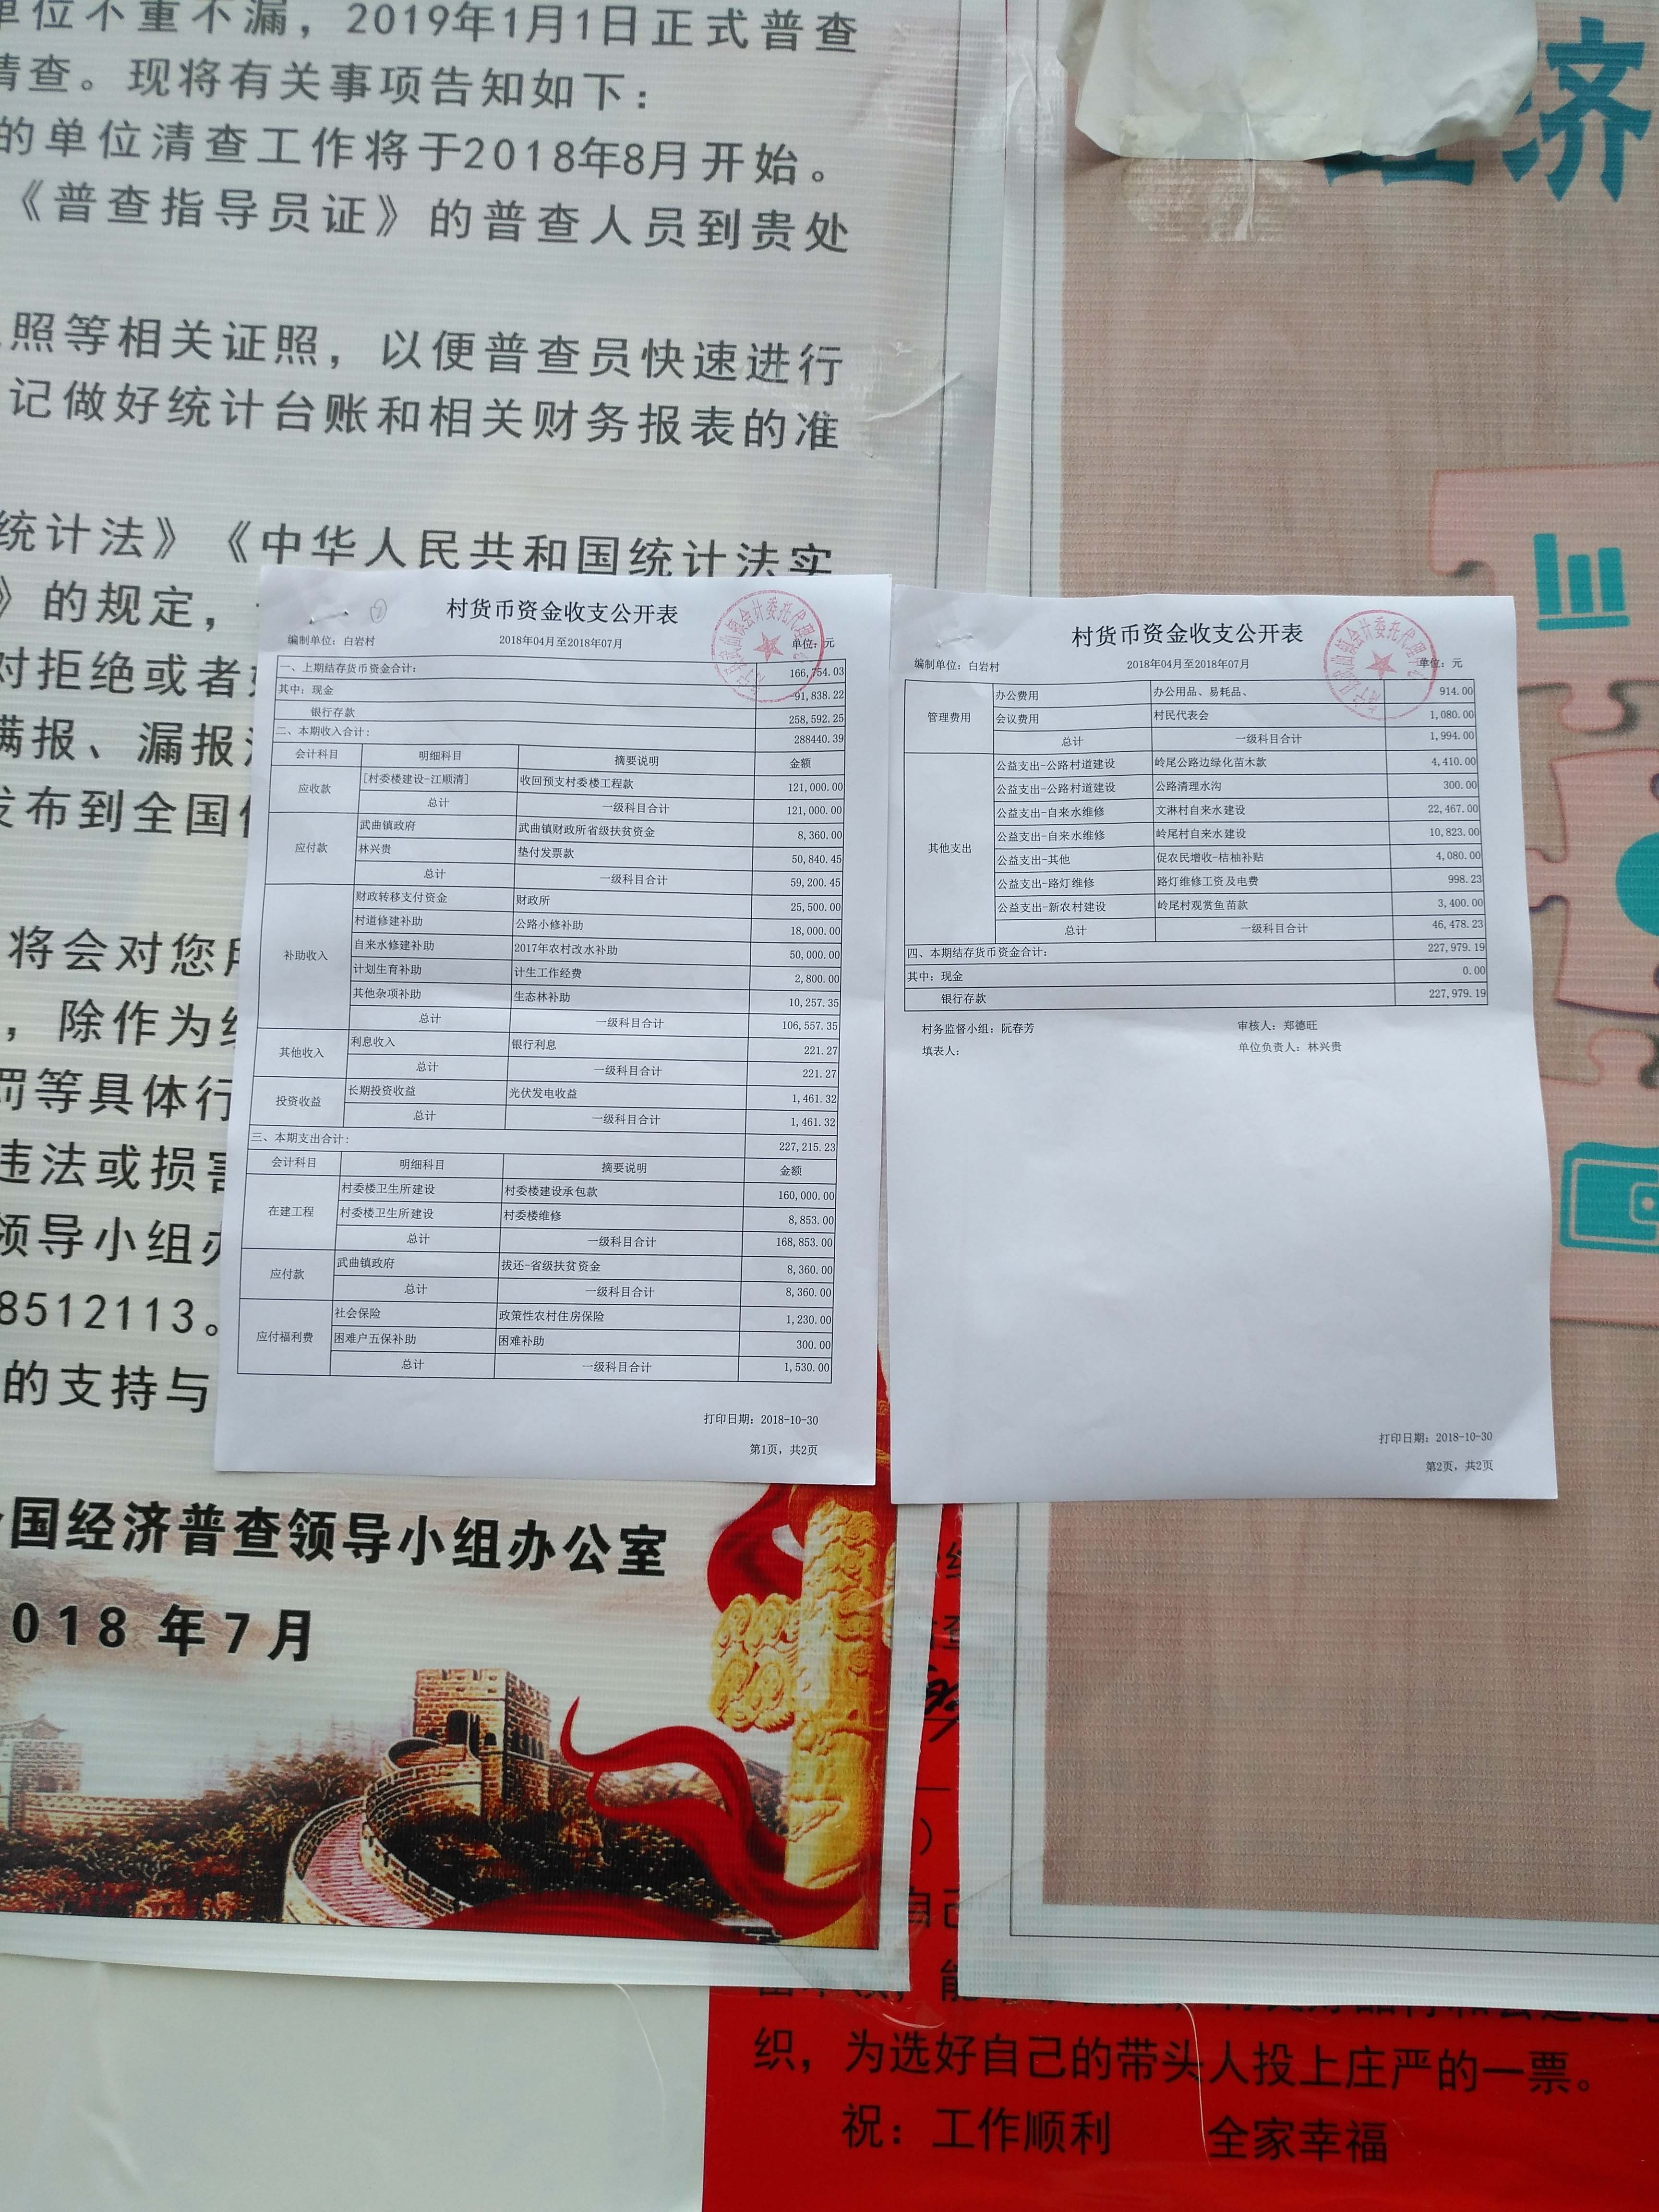 单位不重不漏，2019年1月1日正式普查
清查。现将有关事项告知如下：
的单位清查工作将于2018年8月开始。
《普查指导员证》的普查人员到贵处
照等相关证照，以便普查员快速进行
记做好统计台账和相关财务报表的准
统计法》《中华人民共和国统计法实
》的规定，
对拒绝或者
满报、漏报
发布到全国
将会对您
，除作为
罚等具体行
违法或损害
领导小组办
8512113。
的支持与
全国经济普查领导小组办公室
2018 年7月
济
村货币资金收支公开表
编制单位：白岩村 2018年04月至2018年07月 单位：元
一、上期结存货币资金合计： 166,754.03
其中：现金 -91,838.22
银行存款 258,592.25
二、本期收入合计： 288440.39
会计科目 明细科目 摘要说明 金额
应收款 [村委楼建设-江顺清] 收回预支村委楼工程款 121,000.00
总计 一级科目合计 121,000.00
应付款 武曲镇政府 武曲镇财政所省级扶贫资金 8,360.00
林兴贵 垫付发票款 50,840.45
总计 一级科目合计 59,200.45
补助收入 财政转移支付资金 财政所 25,500.00
村道修建补助 公路小修补助 18,000.00
自来水修建补助 2017年农村改水补助 50,000.00
计划生育补助 计生工作经费 2,800.00
其他杂项补助 生态林补助 10,257.35
总计 一级科目合计 106,557.35
其他收入 利息收入 银行利息 221.27
总计 一级科目合计 221.27
投资收益 长期投资收益 光伏发电收益 1,461.32
总计 一级科目合计 1,461.32
三、本期支出合计： 227,215.23
会计科目 明细科目 摘要说明 金额
在建工程 村委楼卫生所建设 村委楼建设承包款 160,000.00
村委楼卫生所建设 村委楼维修 8,853.00
总计 一级科目合计 168,853.00
应付款 武曲镇政府 拔还-省级扶贫资金 8,360.00
总计 一级科目合计 8,360.00
应付福利费 社会保险 政策性农村住房保险 1,230.00
困难户五保补助 困难补助 300.00
总计 一级科目合计 1,530.00
打印日期：2018-10-30
第1页，共2页
村货币资金收支公开表
编制单位：白岩村 2018年04月至2018年07月 单位：元
管理费用 办公费用 办公用品、易耗品、 914.00
会议费用 村民代表会 1,080.00
总计 一级科目合计 1,994.00
其他支出 公益支出-公路村道建设 岭尾公路边绿化苗木款 4,410.00
公益支出-公路村道建设 公路清理水沟 300.00
公益支出-自来水维修 文淋村自来水建设 22,467.00
公益支出-自来水维修 岭尾村自来水建设 10,823.00
公益支出-其他 促农民增收-桔柚补贴 4,080.00
公益支出-路灯维修 路灯维修工资及电费 998.23
公益支出-新农村建设 岭尾村观赏鱼苗款 3,400.00
总计 一级科目合计 46,478.23
四、本期结存货币资金合计： 227,979.19
其中：现金 0.00
银行存款 227,979.19
村务监督小组：阮春芳 审核人：郑德旺
填表人： 单位负责人：林兴贵
打印日期：2018-10-30
第2页，共2页
织，为选好自己的带头人投上庄严的一票。
祝：工作顺利 全家幸福